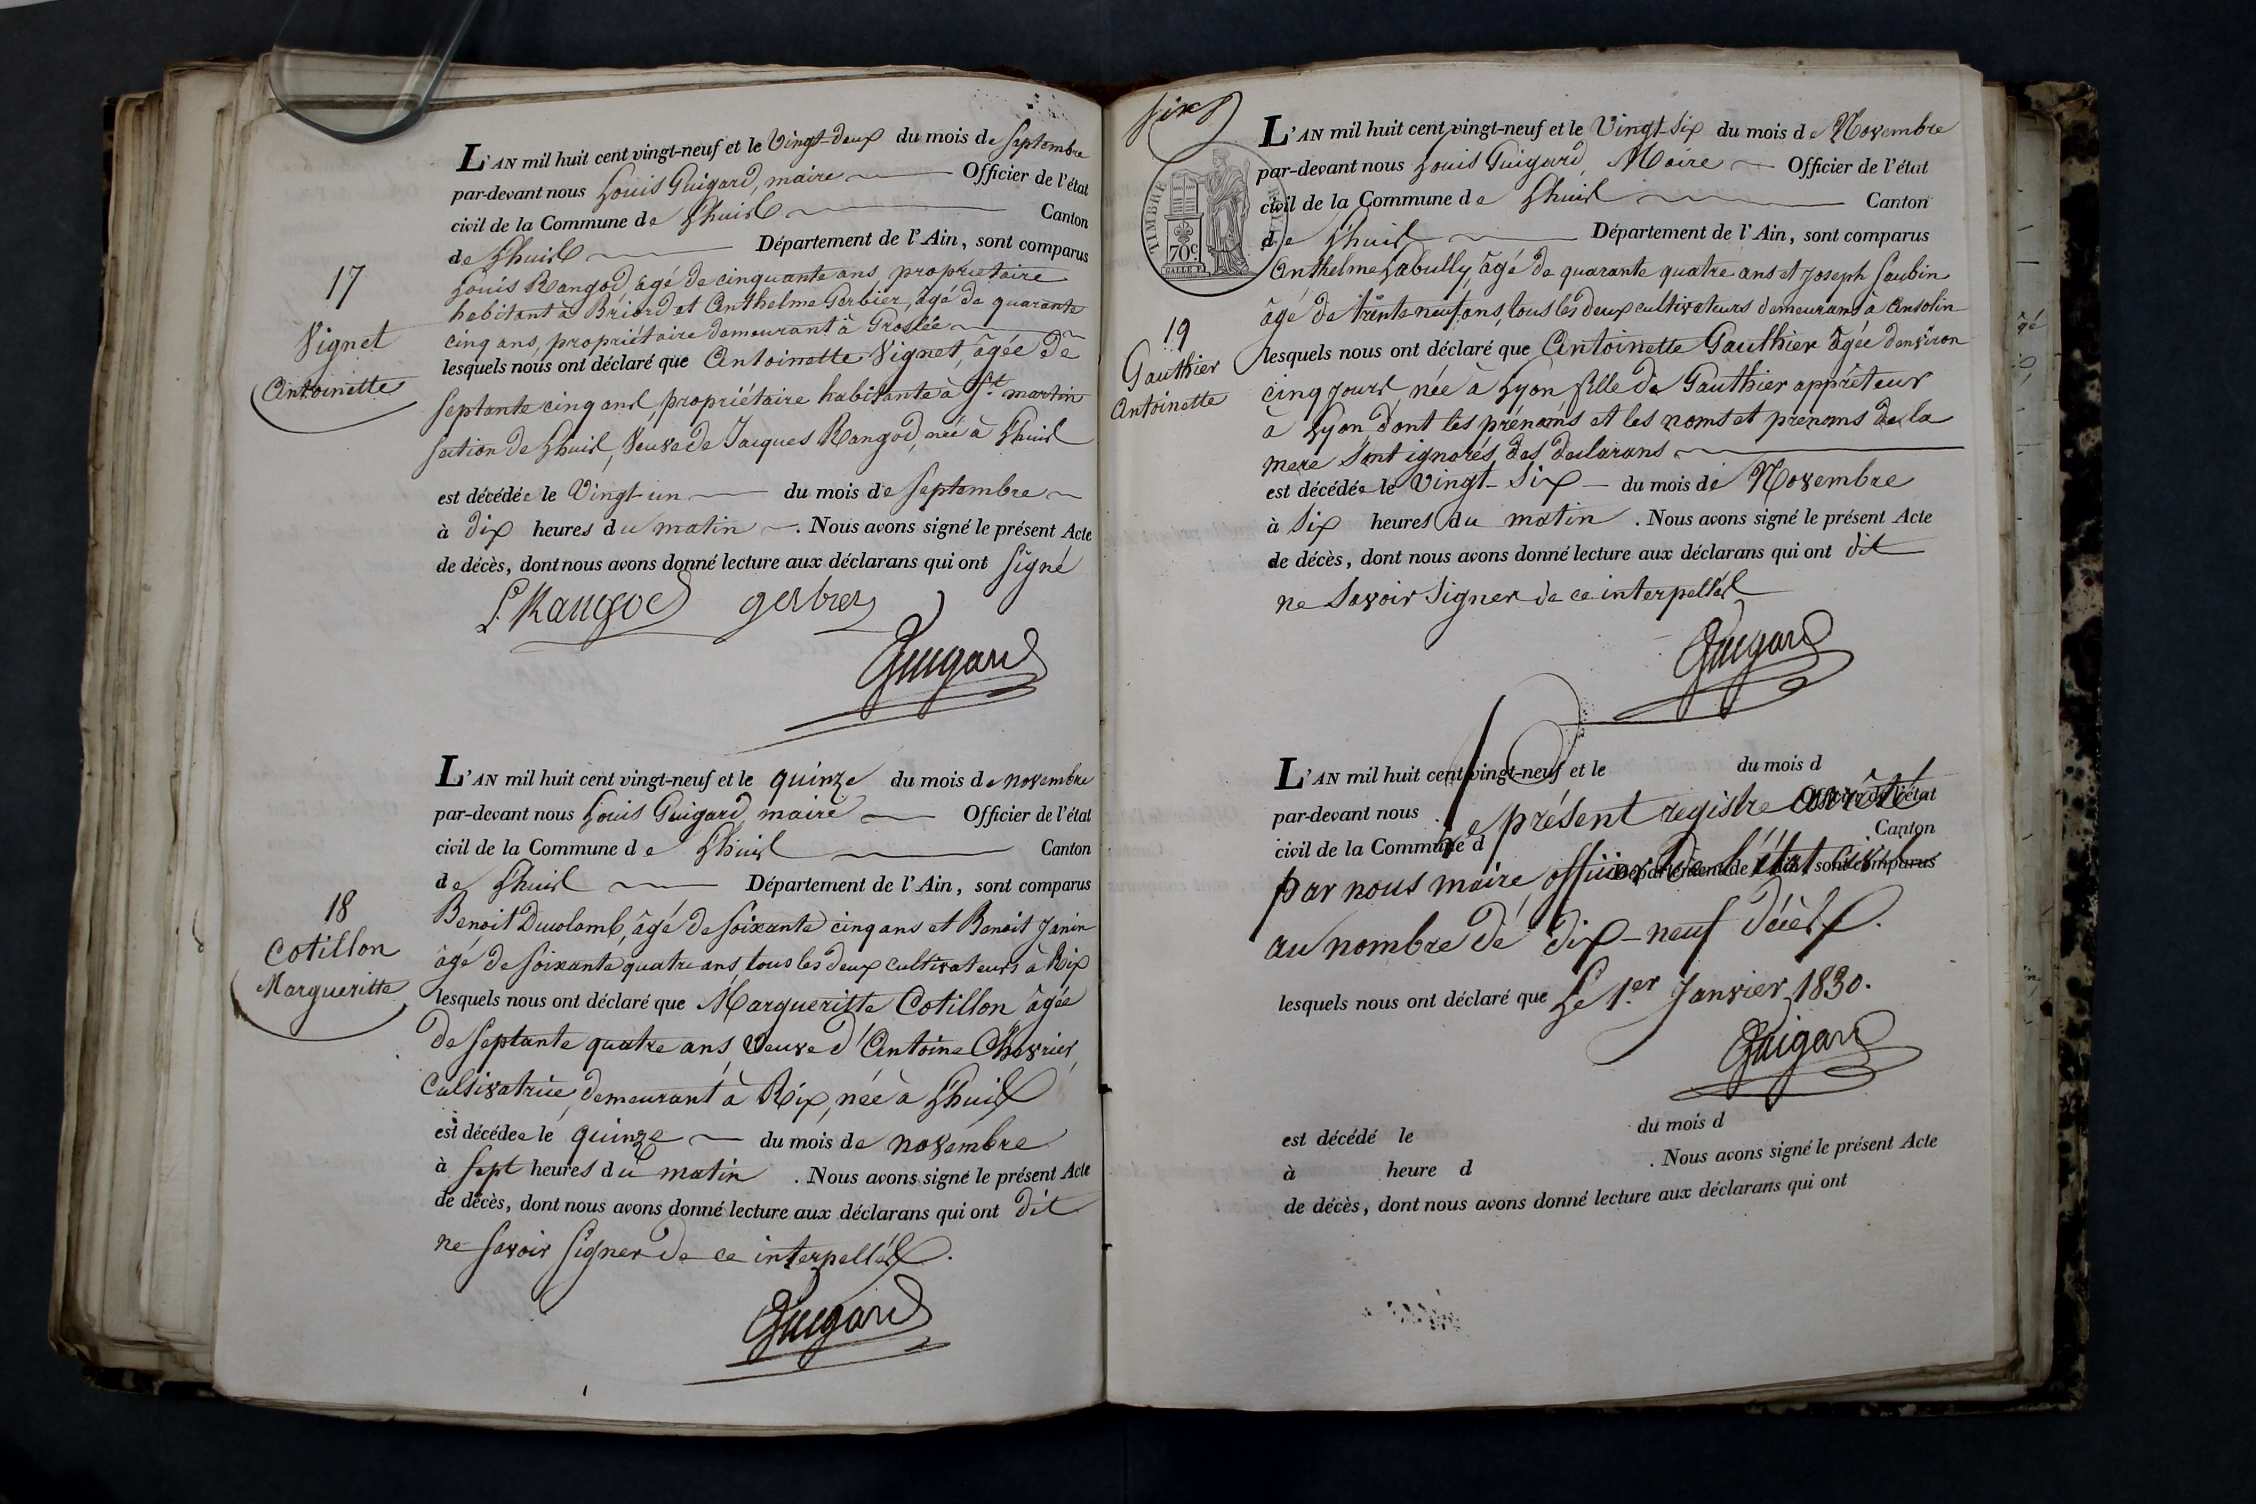 17
Vignet
Antoinette
L'AN mil huit cent vingt-neuf et le Vingt-deux du mois de Septembre
par-devant nous Louis Guigard, maire Officier de l'état
civil de la Commune de Lhuis Canton
de Lhuis Département de l'Ain, sont comparus
Louis Rangod, âgé de cinquante ans, propriétaire
habitant à Briord et Anthelme Gerbier, âgé de quarante
cinq ans, propriétaire demeurant à Groslée
lesquels nous ont déclaré que Antoinette Vignet, âgée de
septante cinq ans, propriétaire habitante à St. martin
section de Lhuis, Veuve de Jacques Rangod, née à Lhuis
est décédée le Vingt-un du mois de Septembre
à dix heures du matin. Nous avons signé le présent Acte
de décès, dont nous avons donné lecture aux déclarans qui ont Signé
L. Rangod gerbier
Guigard
18
Cotillon
Margueritte
L'AN mil huit cent vingt-neuf et le quinze du mois de novembre
par-devant nous Louis Guigard, maire Officier de l'état
civil de la Commune de Lhuis Canton
de Lhuis Département de l'Ain, sont comparus
Benoit Ducolomb, âgé de soixante cinq ans et Benoit Janin
âgé de soixante quatre ans, tous les deux cultivateurs à Rix
lesquels nous ont déclaré que Margueritte Cotillon âgée
de septante quatre ans, Veuve d'Antoine Chevrier,
Cultivatrice, demeurant à Rix, née à Lhuis
est décédée le quinze du mois de novembre
à sept heures du matin. Nous avons signé le présent Acte
de décès, dont nous avons donné lecture aux déclarans qui ont dit
ne savoir signer de ce interpellés.
Guigard
six
TIMBRE
70c
19
Gauthier
Antoinette
L'AN mil huit cent vingt-neuf et le Vingt-Six du mois de Novembre
par-devant nous Louis Guigard, Maire Officier de l'état
civil de la Commune de Lhuis Canton
de Lhuis Département de l'Ain, sont comparus
Anthelme Labully, âgé de quarante quatre ans et Joseph Saubin
âgé de trente neuf ans, tous les deux cultivateurs demeurans à Ansolin
lesquels nous ont déclaré que Antoinette Gauthier âgée d'environ
cinq jours, née à Lyon fille de Gauthier apprêteur
à Lyon dont les prénoms et les noms et prénoms de la
mere sont ignorés des déclarans
est décédée le Vingt-Six du mois de Novembre
à Six heures du matin. Nous avons signé le présent Acte
de décès, dont nous avons donné lecture aux déclarans qui ont dit
ne savoir signer de ce interpellés
Guigard
L'AN mil huit cent vingt-neuf et le du mois d
par-devant nous Officier de l'état
Le présent registre arrêté
civil de la Commune d Canton
Département de l'Ain, sont comparus
par nous maire, officier de l'état civil
au nombre de dix-neuf décès.
lesquels nous ont déclaré que Le 1.er Janvier 1830.
Guigard
est décédé le du mois d
à heure d . Nous avons signé le présent Acte
de décès, dont nous avons donné lecture aux déclarans qui ont